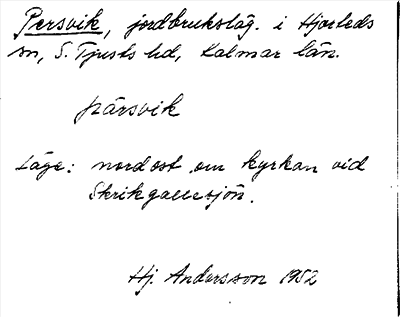 Persvik, jordbruksläg. i Hjorteds
sn, S. Tjusts hd, Kalmar län.
pärsvik
Läge: nordost om kyrkan vid
Skrikgallesjön.
Hj. Andersson 1952